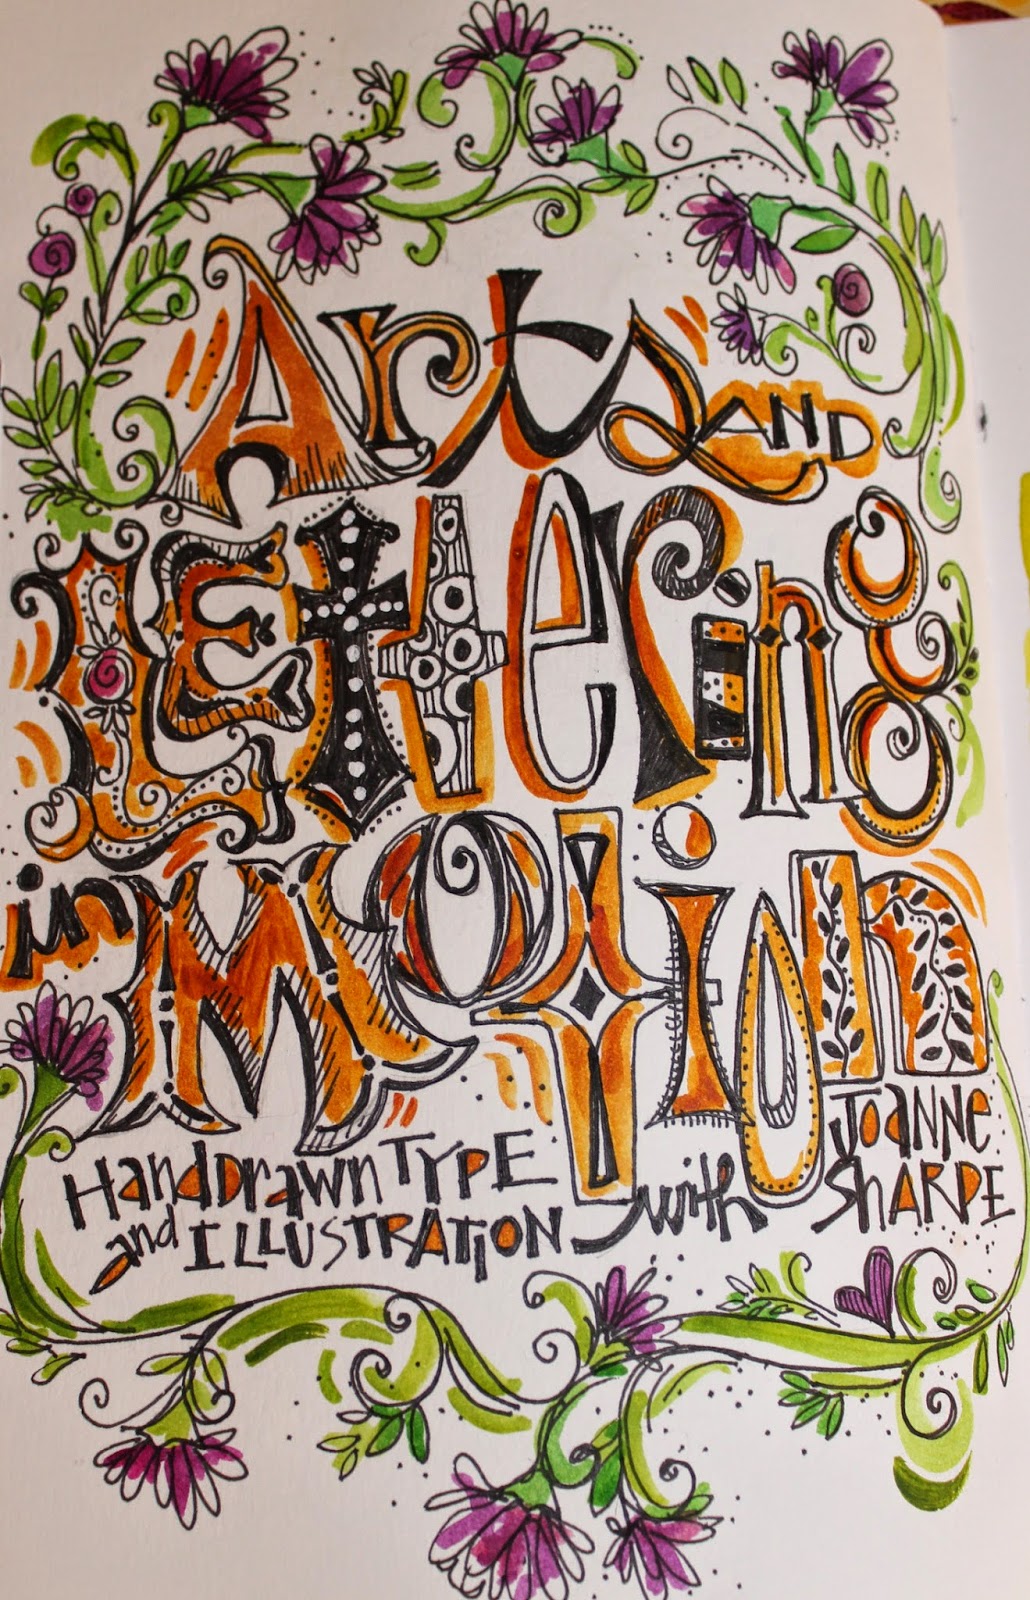 Arts AND
LETTERING
in MOTION
HANDDRAWN TYPE
and ILLUSTRATION with
JOANNE
SHARPE